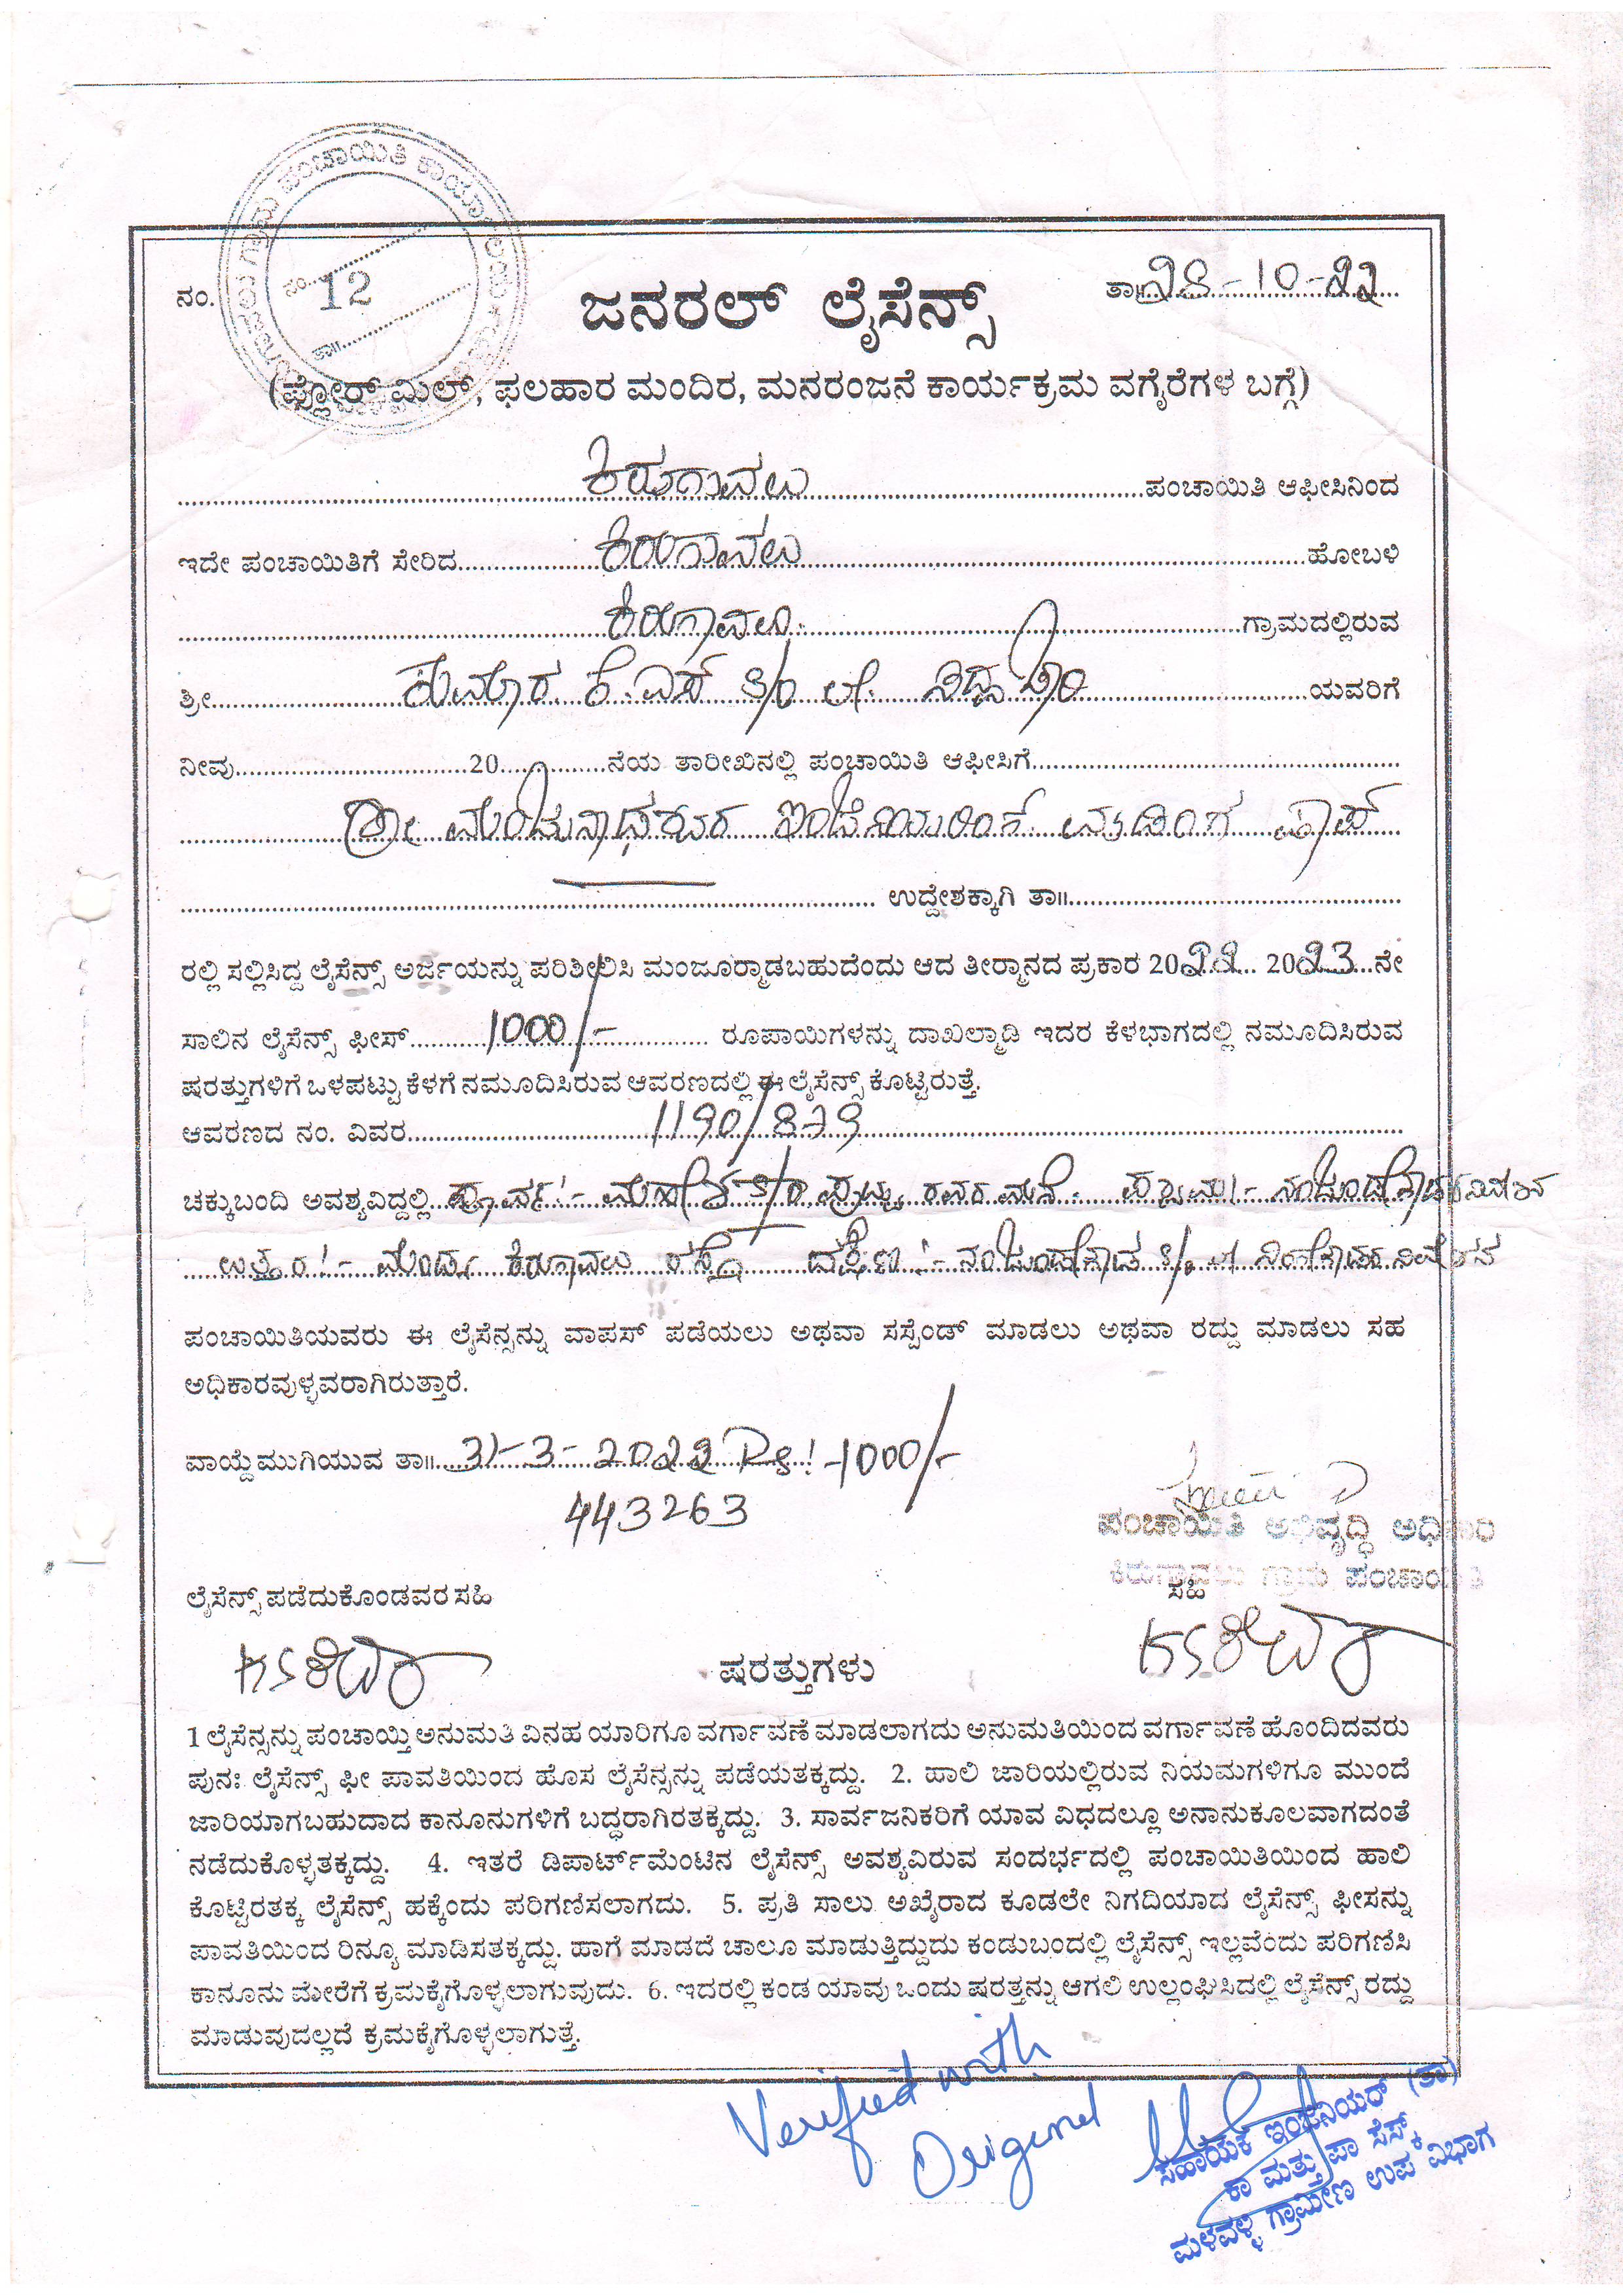 ಪಂಚಾಯಿತಿ ಕಾರ್ಯಾಲಯ
ನಂ. ನಂ. 12 ತಾ॥ 28-10-22
ತಾ॥
ಜನರಲ್ ಲೈಸೆನ್ಸ್
(ಫ್ಲೋರ್ ಮಿಲ್, ಫಲಹಾರ ಮಂದಿರ, ಮನರಂಜನೆ ಕಾರ್ಯಕ್ರಮ ವಗೈರೆಗಳ ಬಗ್ಗೆ)
ಕಿರುಗಾವಲು ಪಂಚಾಯಿತಿ ಆಫೀಸಿನಿಂದ
ಇದೇ ಪಂಚಾಯಿತಿಗೆ ಸೇರಿದ ಕಿರುಗಾವಲು ಹೋಬಳಿ
ಕಿರುಗಾವಲು ಗ್ರಾಮದಲ್ಲಿರುವ
ಶ್ರೀ ಕುಮಾರ ಕೆ.ಎಸ್ S/o ಲೇ. ಯವರಿಗೆ
ನೀವು 20 ನೆಯ ತಾರೀಖಿನಲ್ಲಿ ಪಂಚಾಯಿತಿ ಆಫೀಸಿಗೆ
ಶ್ರೀ ಮಂಜುನಾಥೇಶ್ವರ ಇಂಜಿನಿಯರಿಂಗ್ ಶಾಪ್
ಉದ್ದೇಶಕ್ಕಾಗಿ ತಾ॥
ರಲ್ಲಿ ಸಲ್ಲಿಸಿದ್ದ ಲೈಸೆನ್ಸ್ ಅರ್ಜಿಯನ್ನು ಪರಿಶೀಲಿಸಿ ಮಂಜೂರ್‍ಮಾಡಬಹುದೆಂದು ಆದ ತೀರ್‍ಮಾನದ ಪ್ರಕಾರ 2022 2023 ನೇ
ಸಾಲಿನ ಲೈಸೆನ್ಸ್ ಫೀಸ್ 1000/- ರೂಪಾಯಿಗಳನ್ನು ದಾಖಲ್ಮಾಡಿ ಇದರ ಕೆಳಭಾಗದಲ್ಲಿ ನಮೂದಿಸಿರುವ
ಷರತ್ತುಗಳಿಗೆ ಒಳಪಟ್ಟು ಕೆಳಗೆ ನಮೂದಿಸಿರುವ ಆವರಣದಲ್ಲಿ ಈ ಲೈಸೆನ್ಸ್ ಕೊಟ್ಟಿರುತ್ತೆ.
ಆವರಣದ ನಂ. ವಿವರ 1190/879
ಚಕ್ಕುಬಂದಿ ಅವಶ್ಯವಿದ್ದಲ್ಲಿ ಪೂರ್ವ:- S/o ರವರ ಮನೆ. ಪಶ್ಚಿಮ:-
ಉತ್ತರ:- ಮಂಡ್ಯ ಕಿರುಗಾವಲು ರಸ್ತೆ ದಕ್ಷಿಣ:- ನಂಜುಂಡೇಗೌಡ S/o ಲೇ ನಿವೇಶನ
ಪಂಚಾಯಿತಿಯವರು ಈ ಲೈಸೆನ್ಸನ್ನು ವಾಪಸ್ ಪಡೆಯಲು ಅಥವಾ ಸಸ್ಪೆಂಡ್ ಮಾಡಲು ಅಥವಾ ರದ್ದು ಮಾಡಲು ಸಹ
ಅಧಿಕಾರವುಳ್ಳವರಾಗಿರುತ್ತಾರೆ.
ವಾಯ್ದೆ ಮುಗಿಯುವ ತಾ॥ 31-3-2023 Rs:-1000/-
443263
ಪಂಚಾಯಿತಿ ಅಭಿವೃದ್ಧಿ ಅಧಿಕಾರಿ
ಕಿರುಗಾವಲು ಗ್ರಾಮ ಪಂಚಾಯಿತಿ
ಲೈಸೆನ್ಸ್ ಪಡೆದುಕೊಂಡವರ ಸಹಿ ಸಹಿ
ಷರತ್ತುಗಳು
1 ಲೈಸೆನ್ಸನ್ನು ಪಂಚಾಯ್ತಿ ಅನುಮತಿ ವಿನಹ ಯಾರಿಗೂ ವರ್ಗಾವಣೆ ಮಾಡಲಾಗದು ಅನುಮತಿಯಿಂದ ವರ್ಗಾವಣೆ ಹೊಂದಿದವರು
ಪುನಃ ಲೈಸೆನ್ಸ್ ಫೀ ಪಾವತಿಯಿಂದ ಹೊಸ ಲೈಸೆನ್ಸನ್ನು ಪಡೆಯತಕ್ಕದ್ದು. 2. ಹಾಲಿ ಜಾರಿಯಲ್ಲಿರುವ ನಿಯಮಗಳಿಗೂ ಮುಂದೆ
ಜಾರಿಯಾಗಬಹುದಾದ ಕಾನೂನುಗಳಿಗೆ ಬದ್ಧರಾಗಿರತಕ್ಕದ್ದು. 3. ಸಾರ್ವಜನಿಕರಿಗೆ ಯಾವ ವಿಧದಲ್ಲೂ ಅನಾನುಕೂಲವಾಗದಂತೆ
ನಡೆದುಕೊಳ್ಳತಕ್ಕದ್ದು. 4. ಇತರೆ ಡಿಪಾರ್ಟ್‌ಮೆಂಟಿನ ಲೈಸೆನ್ಸ್ ಅವಶ್ಯವಿರುವ ಸಂದರ್ಭದಲ್ಲಿ ಪಂಚಾಯಿತಿಯಿಂದ ಹಾಲಿ
ಕೊಟ್ಟಿರತಕ್ಕ ಲೈಸೆನ್ಸ್ ಹಕ್ಕೆಂದು ಪರಿಗಣಿಸಲಾಗದು. 5. ಪ್ರತಿ ಸಾಲು ಅಖೈರಾದ ಕೂಡಲೇ ನಿಗದಿಯಾದ ಲೈಸೆನ್ಸ್ ಫೀಸನ್ನು
ಪಾವತಿಯಿಂದ ರಿನ್ಯೂ ಮಾಡಿಸತಕ್ಕದ್ದು. ಹಾಗೆ ಮಾಡದೆ ಚಾಲೂ ಮಾಡುತ್ತಿದ್ದುದು ಕಂಡುಬಂದಲ್ಲಿ ಲೈಸೆನ್ಸ್ ಇಲ್ಲವೆಂದು ಪರಿಗಣಿಸಿ
ಕಾನೂನು ಮೇರೆಗೆ ಕ್ರಮಕೈಗೊಳ್ಳಲಾಗುವುದು. 6. ಇದರಲ್ಲಿ ಕಂಡ ಯಾವು ಒಂದು ಷರತ್ತನ್ನು ಆಗಲಿ ಉಲ್ಲಂಘಿಸಿದಲ್ಲಿ ಲೈಸೆನ್ಸ್ ರದ್ದು
ಮಾಡುವುದಲ್ಲದೆ ಕ್ರಮಕೈಗೊಳ್ಳಲಾಗುತ್ತೆ.
Verified with
Original
ಸಹಾಯಕ ಇಂಜಿನಿಯರ್ (ತಾ)
ಕಾ ಮತ್ತು ಪಾ ಸೆಸ್ಕ್
ಮಳವಳ್ಳಿ ಗ್ರಾಮೀಣ ಉಪ ವಿಭಾಗ